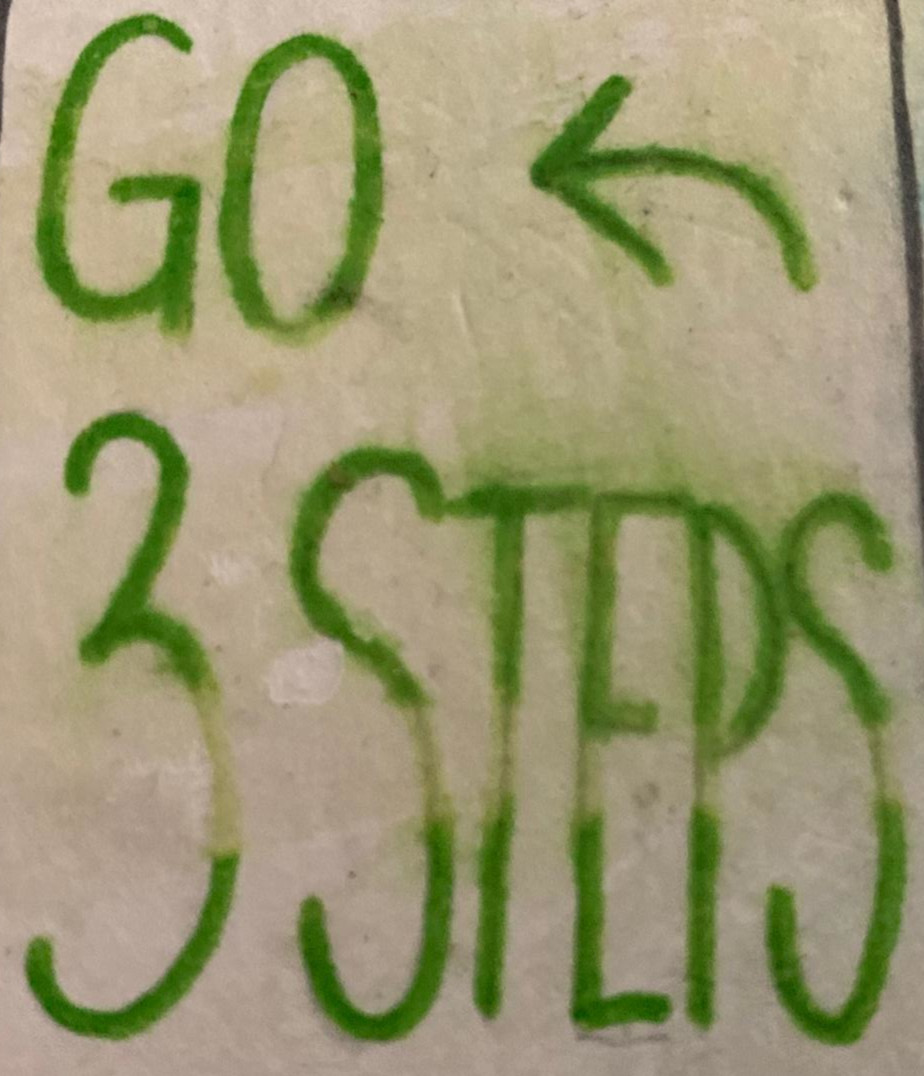 GO ←
3 STEPS